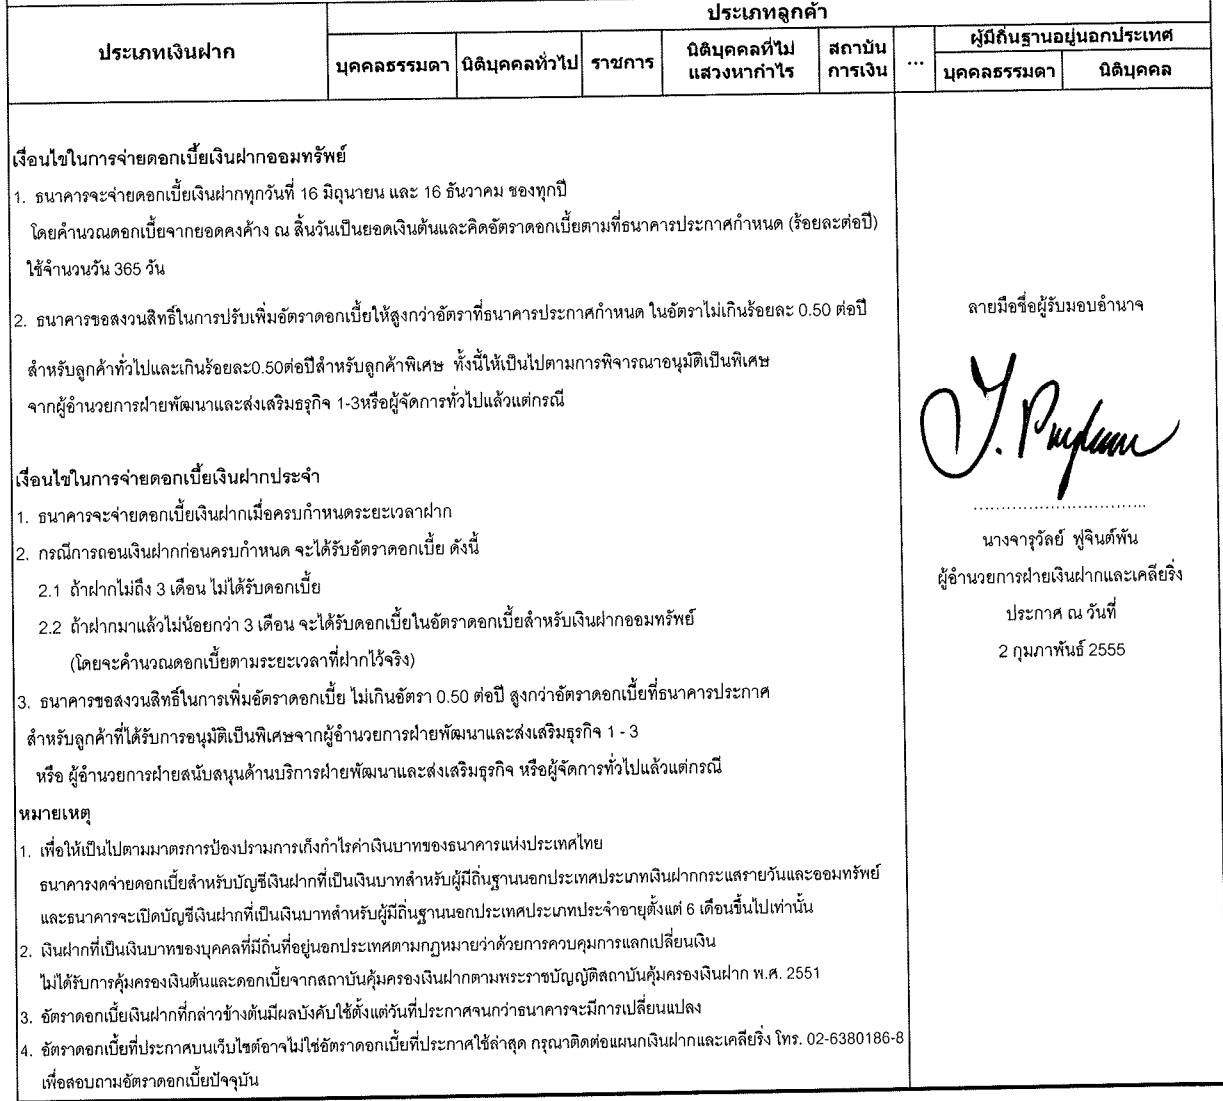 ประเภทลูกค้า
ประเภทเงินฝาก
บุคคลธรรมดา นิติบุคคลทั่วไป ราชการ นิติบุคคลที่ไม่แสวงหากำไร สถาบันการเงิน ... ผู้มีถิ่นฐานอยู่นอกประเทศ
บุคคลธรรมดา นิติบุคคล
เงื่อนไขในการจ่ายดอกเบี้ยเงินฝากออมทรัพย์
1. ธนาคารจะจ่ายดอกเบี้ยเงินฝากทุกวันที่ 16 มิถุนายน และ 16 ธันวาคม ของทุกปี
โดยคำนวณดอกเบี้ยจากยอดคงค้าง ณ สิ้นวันเป็นยอดเงินต้นและคิดอัตราดอกเบี้ยตามที่ธนาคารประกาศกำหนด (ร้อยละต่อปี)
ใช้จำนวนวัน 365 วัน
2. ธนาคารขอสงวนสิทธิ์ในการปรับเพิ่มอัตราดอกเบี้ยให้สูงกว่าอัตราที่ธนาคารประกาศกำหนด ในอัตราไม่เกินร้อยละ 0.50 ต่อปี
สำหรับลูกค้าทั่วไปและเกินร้อยละ0.50ต่อปีสำหรับลูกค้าพิเศษ ทั้งนี้ให้เป็นไปตามการพิจารณาอนุมัติเป็นพิเศษ
จากผู้อำนวยการฝ่ายพัฒนาและส่งเสริมธรุกิจ 1-3หรือผู้จัดการทั่วไปแล้วแต่กรณี
เงื่อนไขในการจ่ายดอกเบี้ยเงินฝากประจำ
1. ธนาคารจะจ่ายดอกเบี้ยเงินฝากเมื่อครบกำหนดระยะเวลาฝาก
2. กรณีการถอนเงินฝากก่อนครบกำหนด จะได้รับอัตราดอกเบี้ย ดังนี้
2.1 ถ้าฝากไม่ถึง 3 เดือน ไม่ได้รับดอกเบี้ย
2.2 ถ้าฝากมาแล้วไม่น้อยกว่า 3 เดือน จะได้รับดอกเบี้ยในอัตราดอกเบี้ยสำหรับเงินฝากออมทรัพย์
(โดยจะคำนวณดอกเบี้ยตามระยะเวลาที่ฝากไว้จริง)
3. ธนาคารขอสงวนสิทธิ์ในการเพิ่มอัตราดอกเบี้ย ไม่เกินอัตรา 0.50 ต่อปี สูงกว่าอัตราดอกเบี้ยที่ธนาคารประกาศ
สำหรับลูกค้าที่ได้รับการอนุมัติเป็นพิเศษจากผู้อำนวยการฝ่ายพัฒนาและส่งเสริมธุรกิจ 1 - 3
หรือ ผู้อำนวยการฝ่ายสนับสนุนด้านบริการฝ่ายพัฒนาและส่งเสริมธุรกิจ หรือผู้จัดการทั่วไปแล้วแต่กรณี
หมายเหตุ
1. เพื่อให้เป็นไปตามมาตรการป้องปรามการเก็งกำไรค่าเงินบาทของธนาคารแห่งประเทศไทย
ธนาคารงดจ่ายดอกเบี้ยสำหรับบัญชีเงินฝากที่เป็นเงินบาทสำหรับผู้มีถิ่นฐานนอกประเทศประเภทเงินฝากกระแสรายวันและออมทรัพย์
และธนาคารจะเปิดบัญชีเงินฝากที่เป็นเงินบาทสำหรับผู้มีถิ่นฐานนอกประเทศประเภทประจำอายุตั้งแต่ 6 เดือนขึ้นไปเท่านั้น
2. เงินฝากที่เป็นเงินบาทของบุคคลที่มีถิ่นที่อยู่นอกประเทศตามกฎหมายว่าด้วยการควบคุมการแลกเปลี่ยนเงิน
ไม่ได้รับการคุ้มครองเงินต้นและดอกเบี้ยจากสถาบันคุ้มครองเงินฝากตามพระราชบัญญัติสถาบันคุ้มครองเงินฝาก พ.ศ. 2551
3. อัตราดอกเบี้ยเงินฝากที่กล่าวข้างต้นมีผลบังคับใช้ตั้งแต่วันที่ประกาศจนกว่าธนาคารจะมีการเปลี่ยนแปลง
4. อัตราดอกเบี้ยที่ประกาศบนเว็บไซต์อาจไม่ใช่อัตราดอกเบี้ยที่ประกาศใช้ล่าสุด กรุณาติดต่อแผนกเงินฝากและเคลียริ่ง โทร. 02-6380186-8
เพื่อสอบถามอัตราดอกเบี้ยปัจจุบัน
ลายมือชื่อผู้รับมอบอำนาจ
..............................
นางจารุวัลย์ ฟูจินต์พัน
ผู้อำนวยการฝ่ายเงินฝากและเคลียริ่ง
ประกาศ ณ วันที่
2 กุมภาพันธ์ 2555